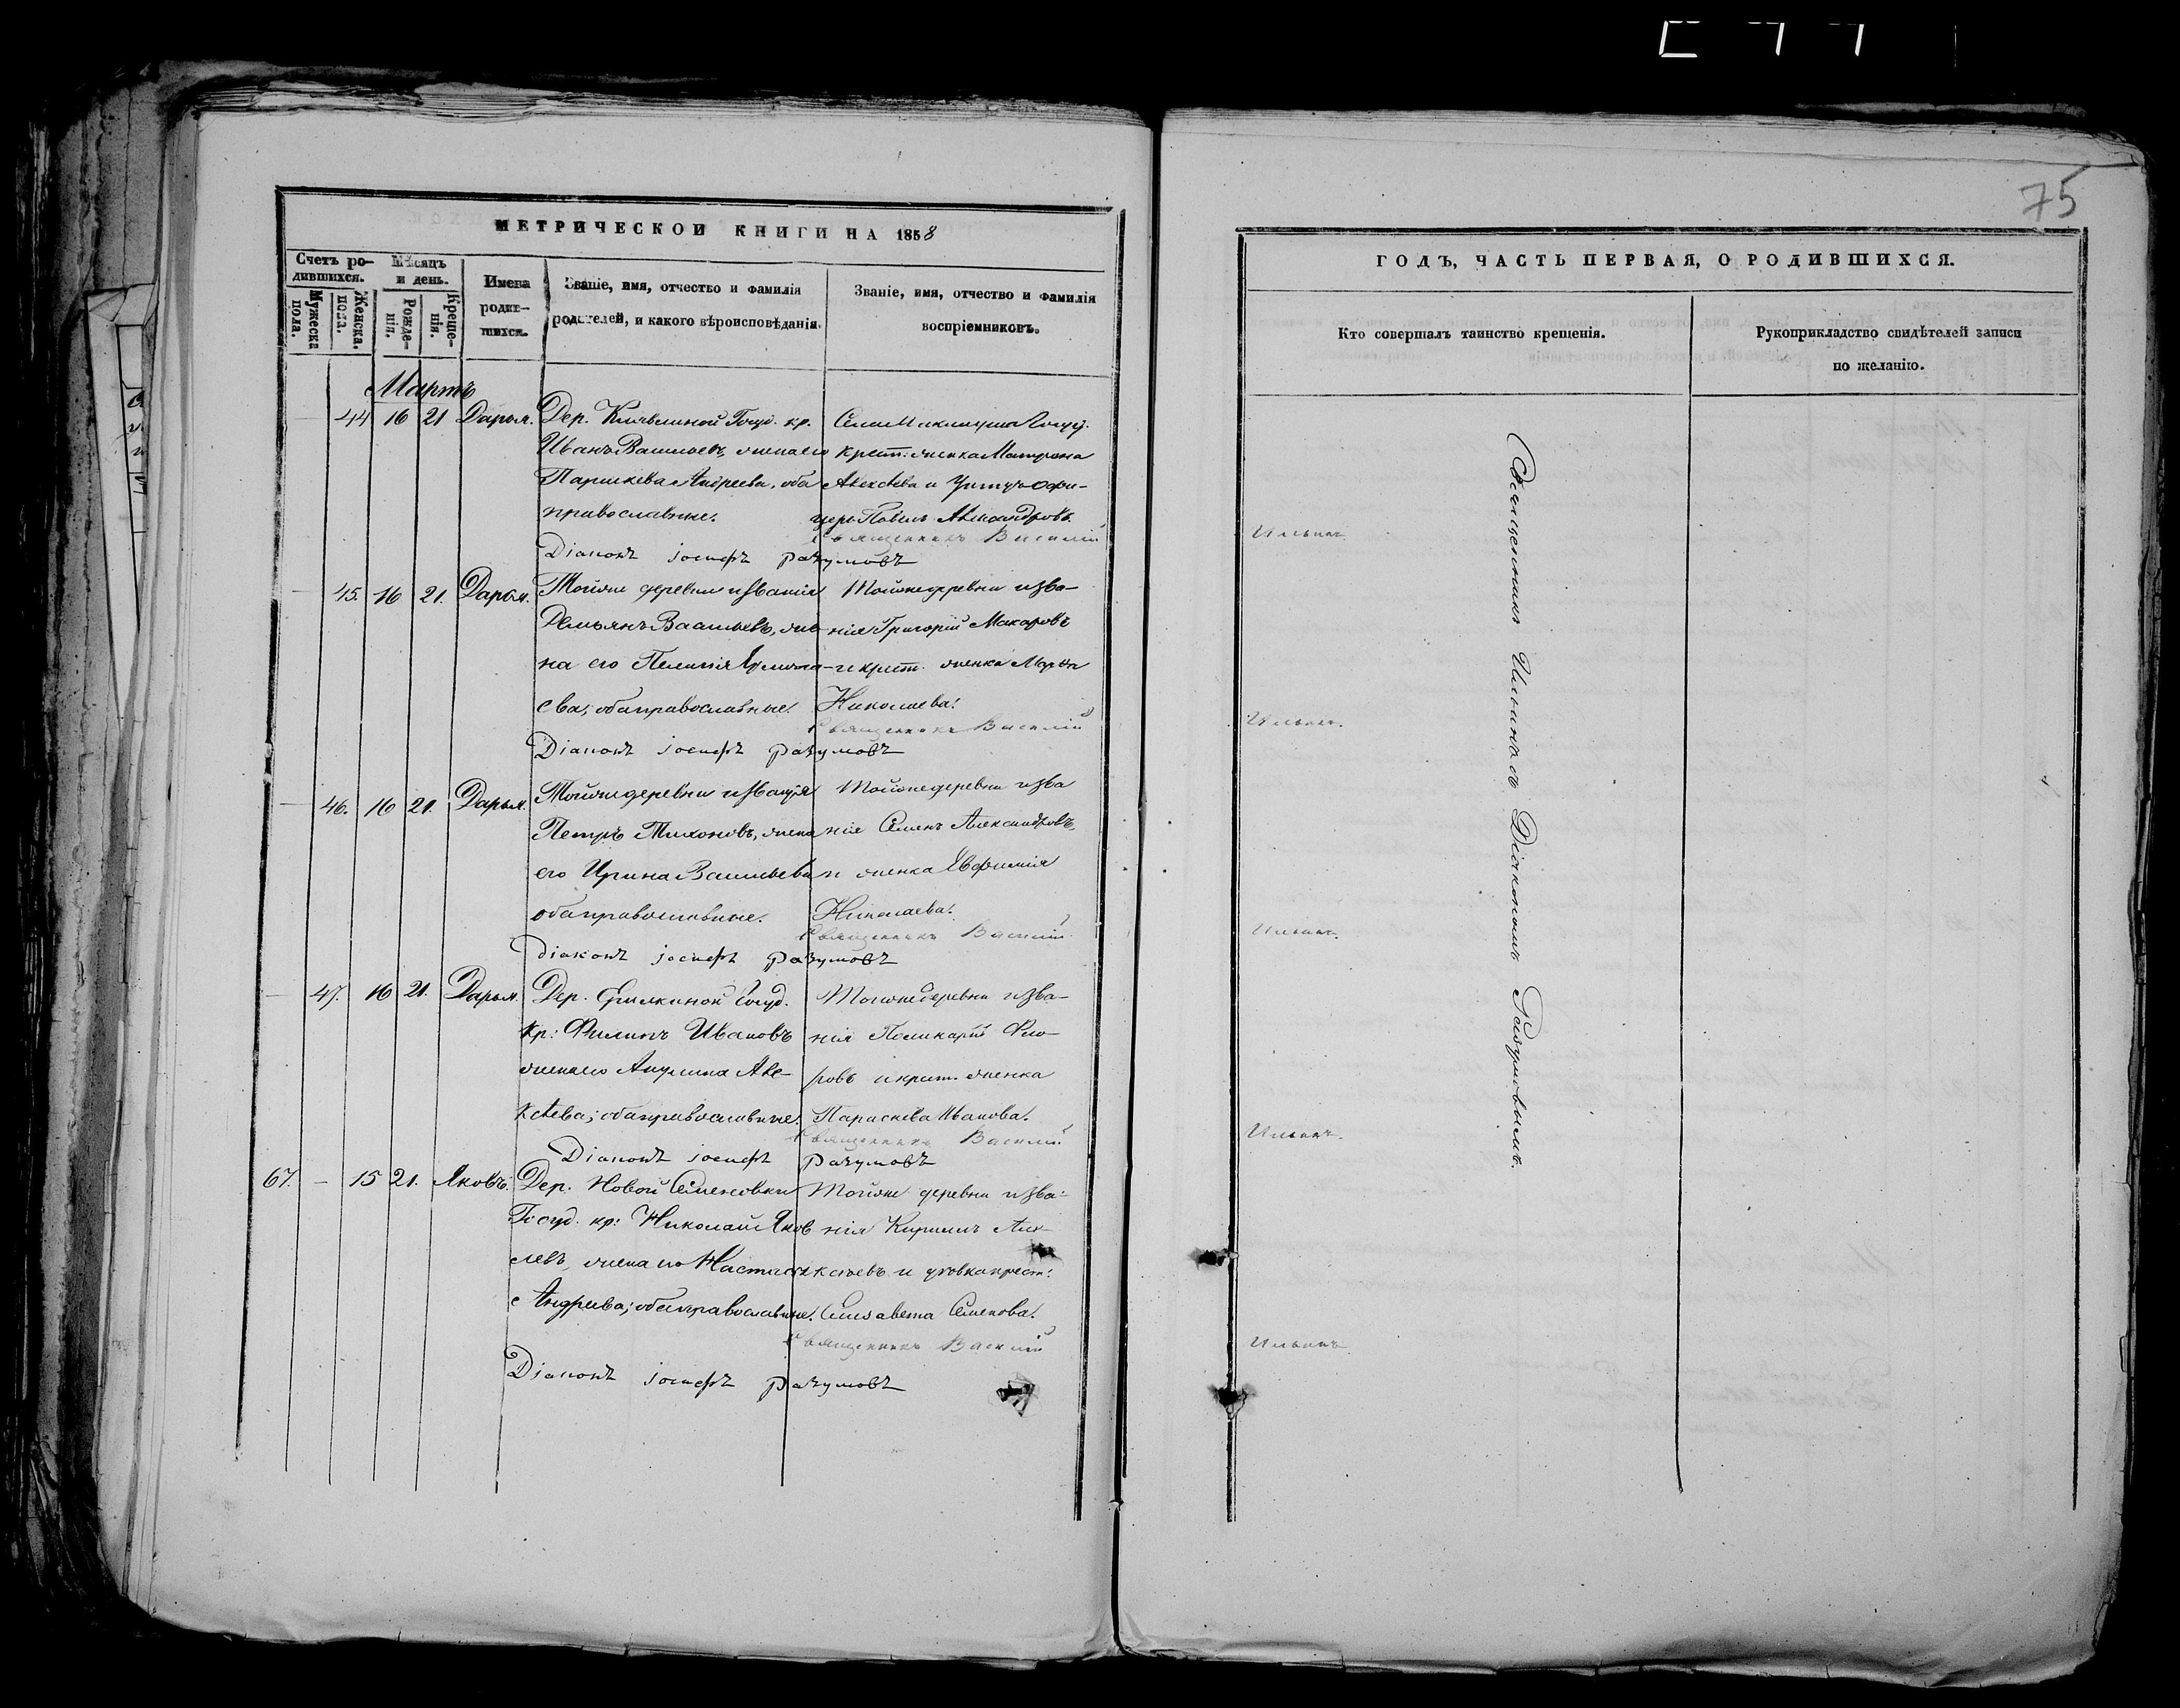 75
МЕТРИЧЕСКОЙ КНИГИ НА 1858
ГОДЪ, ЧАСТЬ ПЕРВАЯ, О РОДИВШИХСЯ.
Счетъ родившихся.
Мужеска пола.
Женска. пола.
Мѣсяцъ и день.
Рожденія.
Крещенія.
Имена родившихся.
Званіе, имя, отчество и фамилія
родителей, и какого вѣроисповѣданія.
Званіе, имя, отчество и фамилія
воспріемниковъ.
Кто совершалъ таинство крещенія.
Рукоприкладство свидѣтелей записи
по желанію.
Мартъ
44 16 21 Дарья.
Дер. Госуд. кр.
Иванъ Васильевъ, жена его
Параскева Андреева, оба
православные.
Госуд.
крест. женка Матрона
Алексѣева и Унтеръ-офи-
церъ Павелъ Александровъ.
Священникъ Василій Ильинъ
Діаконъ іосифъ разумовъ
45. 16 21. Дарья.
Тойже деревни и званія
Демьянъ Васильевъ, же-
на его Пелагія Ермола-
ева; оба православные.
Тойже деревни и зва-
нія Григорій Макаровъ
и крест. женка Марья
Николаева.
Священникъ Василій Ильинъ.
Діаконъ іосифъ разумовъ
46. 16 21. Дарья.
Тойже деревни и званія
Петръ Тихоновъ, жена
его Ирина Васильева
оба православные.
Тойже деревни и зва
нія Семенъ Александровъ,
и женка Евфимія
Николаева.
Священникъ Василій Ильинъ.
Діаконъ іосифъ разумовъ
47. 16 21. Дарья.
Дер. Госуд.
Кр: Филипъ Ивановъ
жена его Акулина Але-
ксѣева; оба православные.
Тойже деревни и зва-
нія Поликарпъ Фео-
ровъ и крест. женка
Параскева Иванова.
Священникъ Василій Ильинъ.
Діаконъ іосифъ разумовъ
67 — 15 21. Яковъ.
Дер. Новой Семеновки
Госуд. кр: Николай Яков
левъ, жена его Настасья
Андреева; оба православные.
Тойже деревни и зва-
нія Кирилъ Але
ксѣевъ и крест.
Елисавета Семенова.
Священникъ Василій Ильинъ
Діаконъ іосифъ разумовъ
Священникъ Ильинъ съ Діакономъ Разумовымъ.